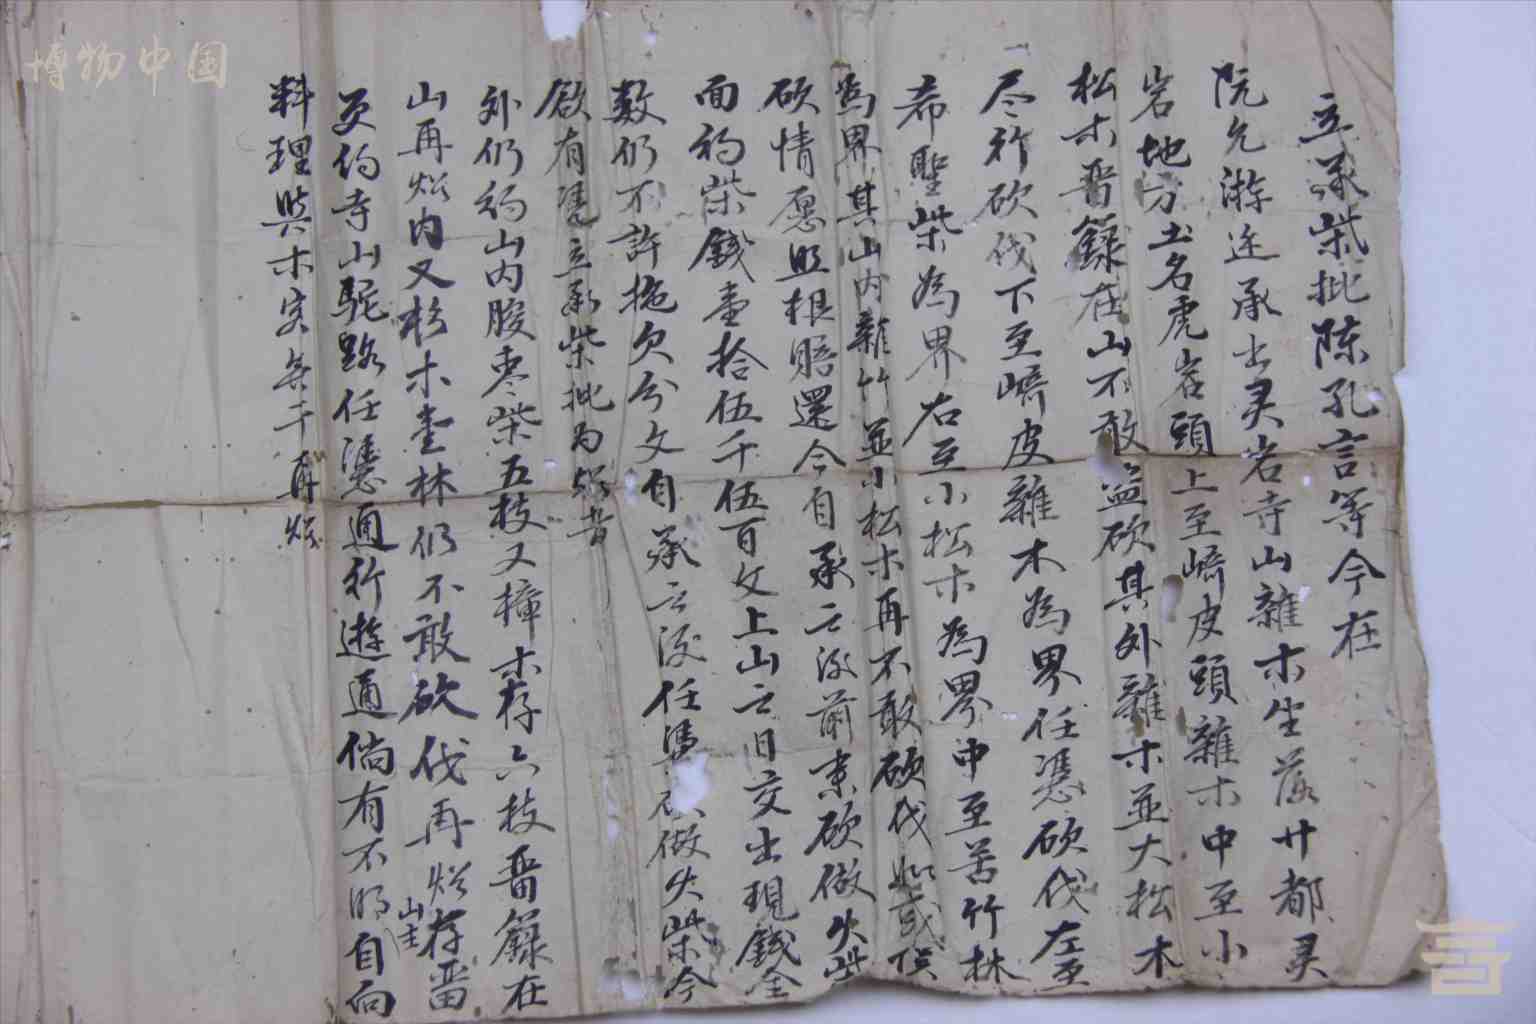 立承柴批陈孔言等今在
阮允游边承出灵岩寺山雜木坐落廿都灵
岩地方土名虎岩頭上至崎皮頭雜木中至小
松木畨籙在山不敢盜砍其外雜木並大松木
尽行砍伐下至崎皮雜木為界任憑砍伐左至
希聖柴為界右至小松木為界中至苦竹林
為界其山内雜竹並小松木再不敢砍伐如或誤
砍情愿照根賠還今自承之後前来砍做火柴
面約柴錢壹拾伍千伍百文上山之日交出現錢全
数仍不許拖欠分文自承之後任憑砍做火柴今
欲有憑立承柴批為照者
外仍約山内股枣柴五枝又樟木存六枝畨籙在
山再炤内又杉木壹林仍不敢砍伐再炤存畨
山主
另約寺山駝路任憑通行遊通倘有不明自向
料理與木客無干再炤
博物中国